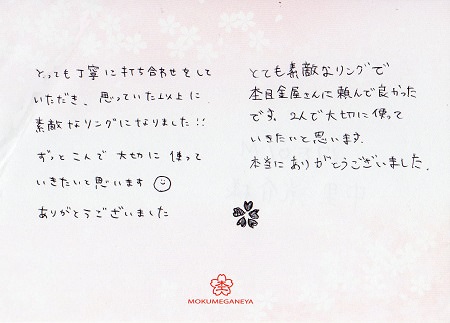 とっても丁寧に打ち合わせをして
いただき、思っていた以上に
素敵なリングになりました!!
ずっと二人で大切に使って
いきたいと思います
ありがとうございました
とても素敵なリングで
杢目金屋さんに頼んで良かった
です。2人で大切に使って
いきたいと思います。
本当にありがとうございました。
杢
MOKUMEGANEYA